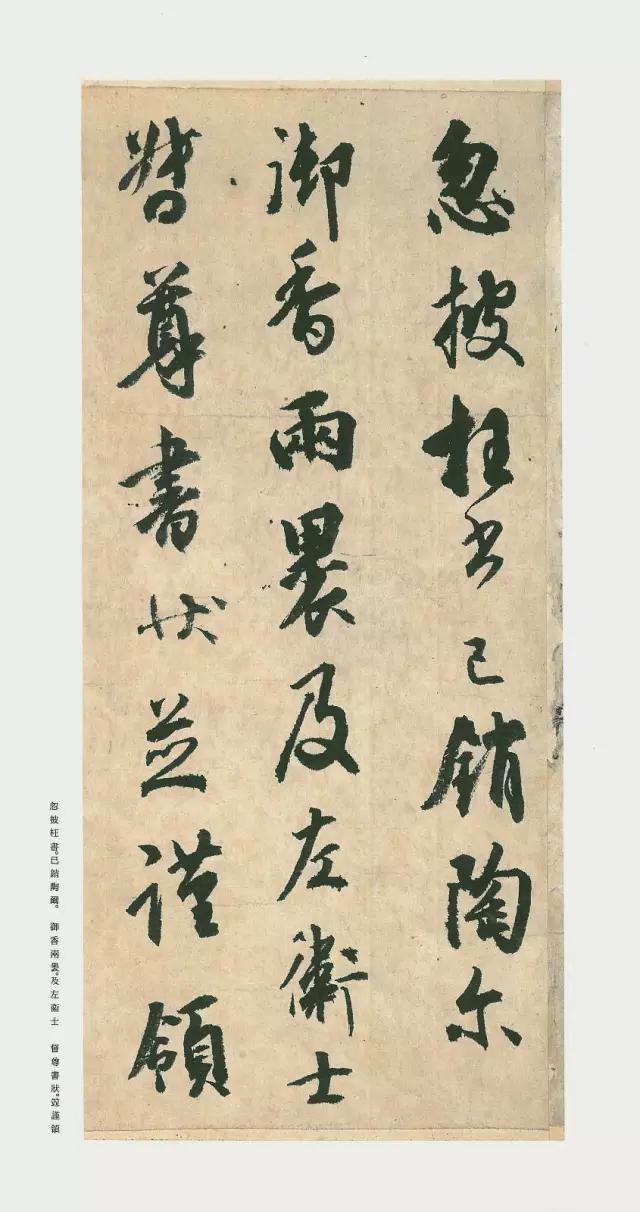 忽披枉书已銷陶尔
御香兩裹及左衛士
督尊書狀並謹領
忽披枉書。已銷陶爾。 御香兩裹。及左衛士 督尊書狀。竝謹領